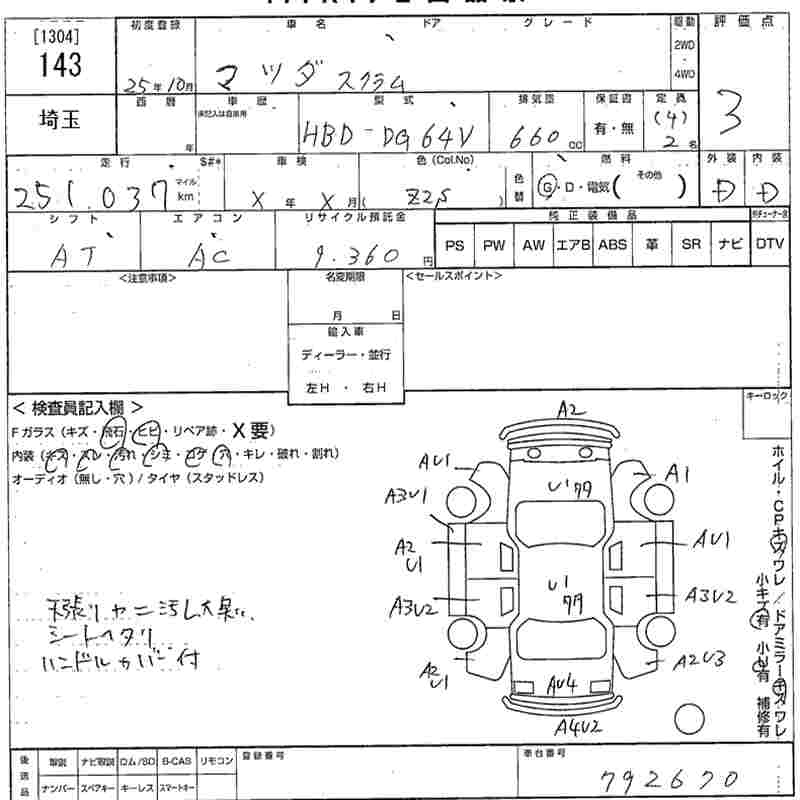 [1304]
143
初度登録 車名 ドア グレード 駆動 評価点
25年10月 マツダ スクラム 2WD・4WD 3
埼玉
西暦 年 車歴 未記入は自家用 型式 排気量 保証書 定員
HBD-DG64V 660cc 有・無 (4) 2名
走行 S#* 車検 色(Col.No) 色替 燃料 その他 外装 内装
251.037 マイル km X年 X月 ( Z2S ) G・D・電気( ) D D
シフト エアコン リサイクル預託金 純正装備品
AT AC 9.360円 PS PW AW エアB ABS 革 SR ナビ DTV
<注意事項> 名変期限 <セールスポイント>
月 日
輸入車
ディーラー・並行
左H ・ 右H
キーロック
< 検査員記入欄 >
Fガラス(キズ・飛石・ヒビ・リペア跡・X要)
内装(キズ・スレ・汚れ・シミ・コゲ・穴・キレ・破れ・割れ)
オーディオ(無し・穴)/タイヤ(スタッドレス)
A2
AU1 A1
U1
A3U1
A2 U1 AU1
U1
A3U2 A3U2
A2 U1 A2U3
AU4
A4U2
天張りヤニ汚し大臭い
シートヘタリ
ハンドルカバー付
ホイル・CPキズ/ワレ/ドアミラーキズ/ワレ
小キズ有 小U有 補修有
後送品 取説 ナビ取説 ロム/SD B-CAS リモコン 登録番号 車台番号
ナンバー スペアキー キーレス スマートキー 792670